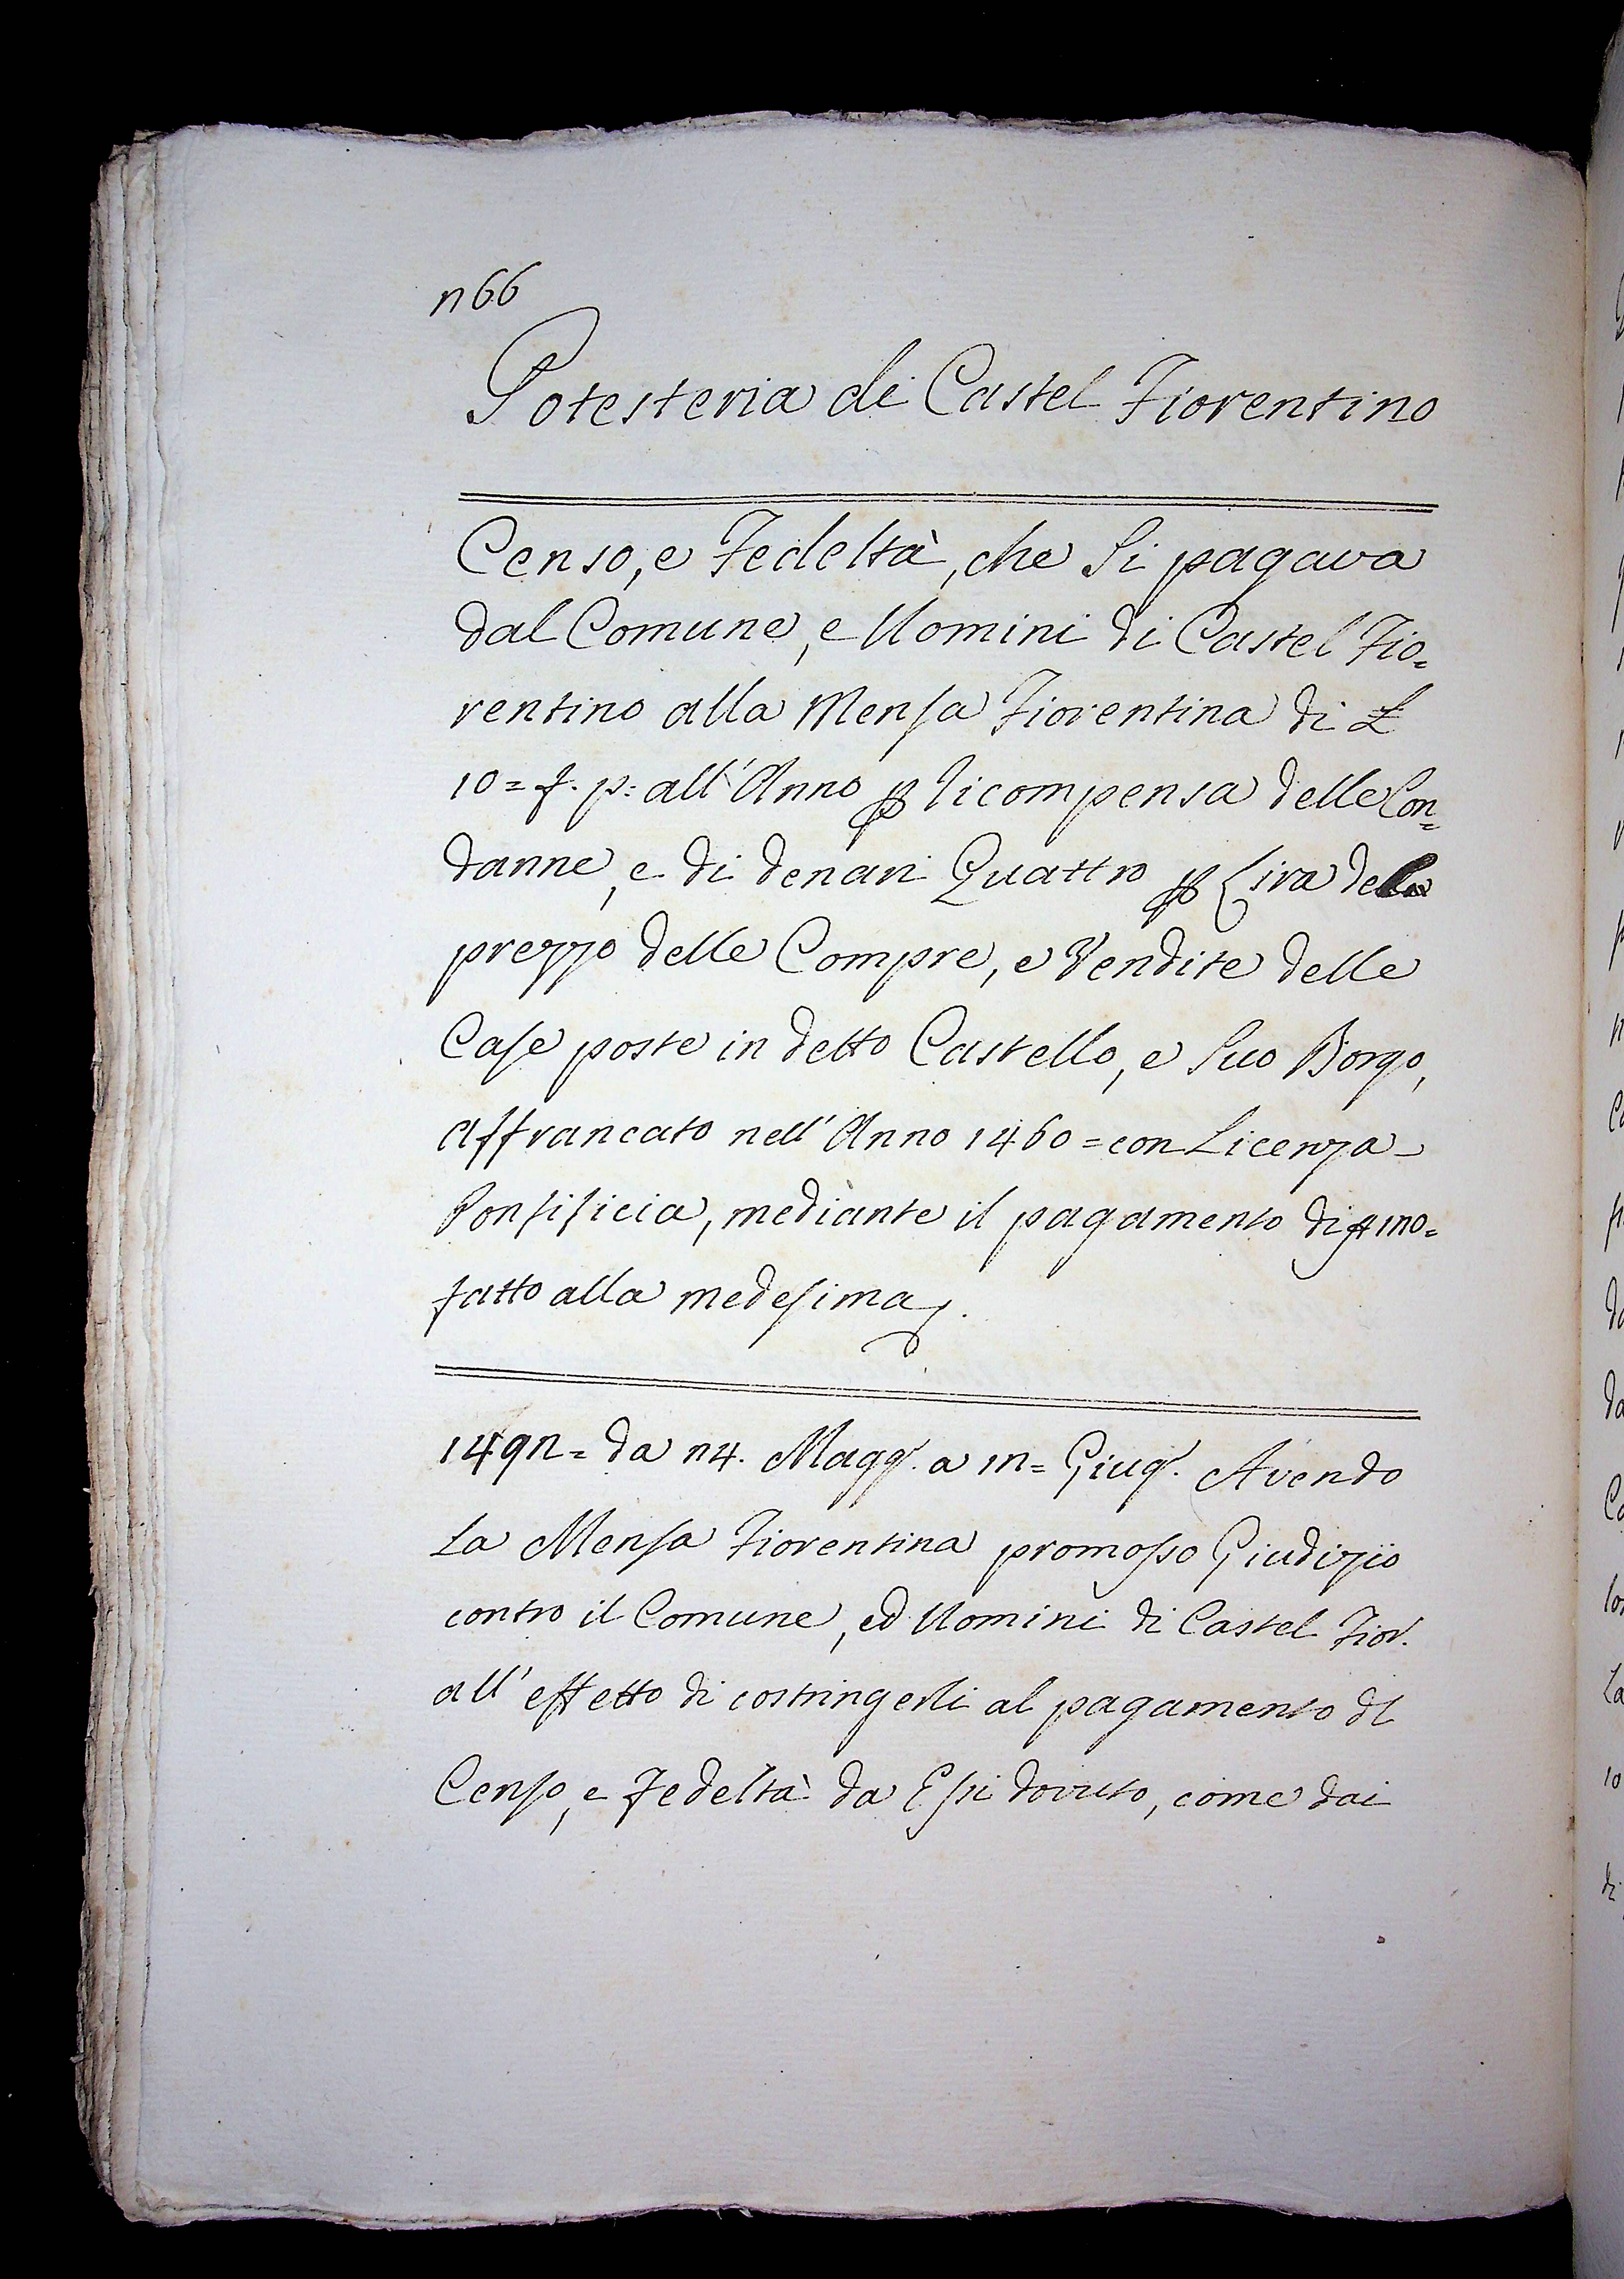 266
Potesteria di Castel Fiorentino
Censo, e Fedeltà, che Si pagava
dal Comune, e Uomini di Castel Fio=
rentino alla Mensa Fiorentina di £
10= f. p: all'Anno ꝑ ricompensa delle Con=
danne, e di denari Quattro ꝑ Lira del
prezzo delle Compre, e Vendite delle
Case poste in detto Castello, e Suo Borgo,
affrancato nell'Anno 1460= con Licenza
Pontificia, mediante il pagamento di
fatto alla medesima.
1492= da 24. Magg. a 12= Giug. Avendo
La Mensa Fiorentina promosso Giudizio
contro il Comune, ed Uomini di Castel Fior.
all'effetto di costringerli al pagamento dl
Censo, e Fedeltà da Essi dovuto, come dai